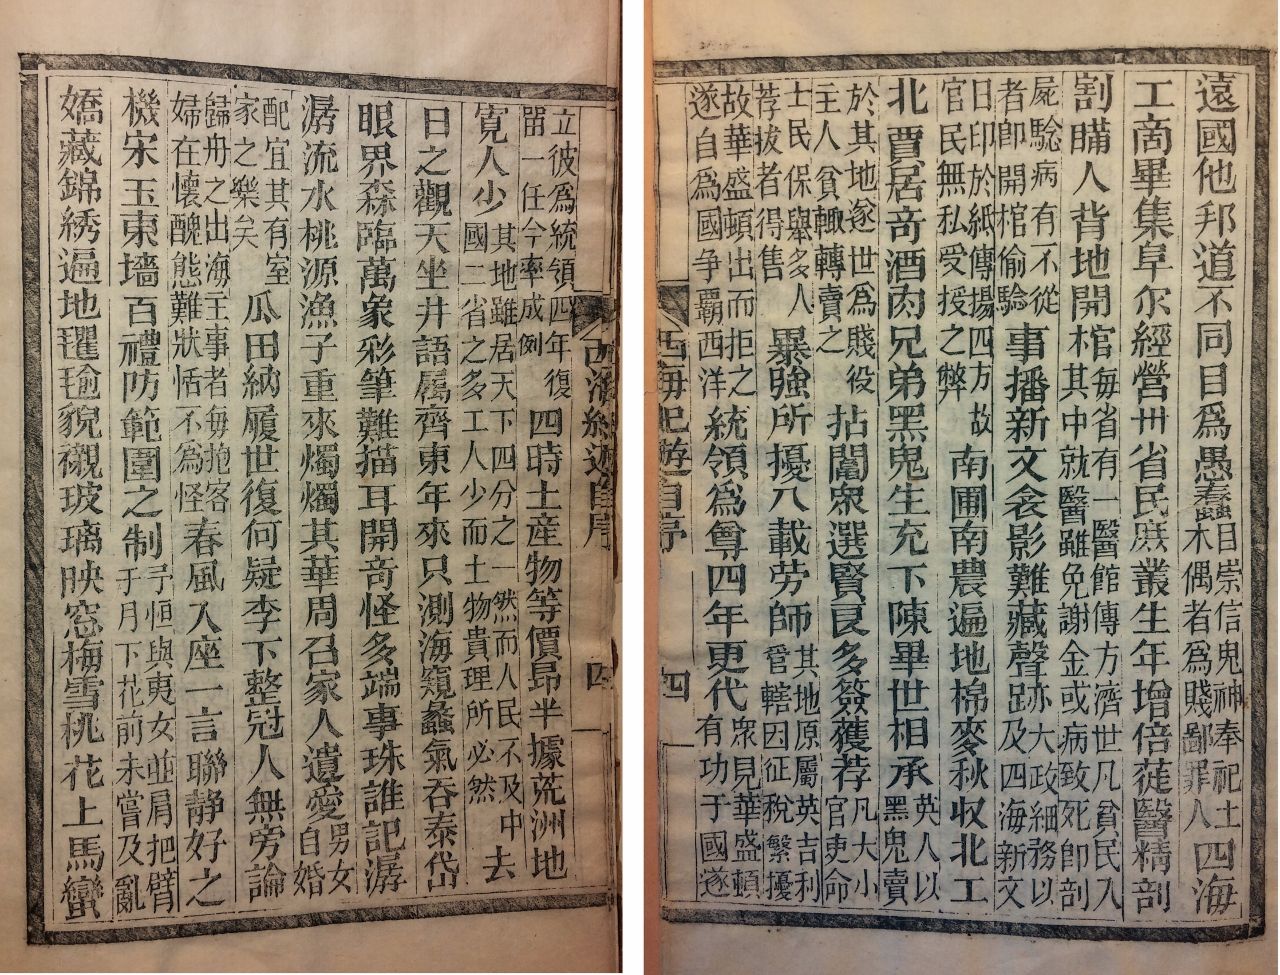 遠國他邦道不同目爲愚蠢目崇信鬼神奉祀土木偶者爲賤鄙罪人四海
工商畢集阜尔經營卅省民庶叢生年增倍蓰醫精剖
割瞞人背地開棺毎省有一醫館傳方濟世凡貧民入其中就醫雖免謝金或病致死卽剖
屍騐病有不從者卽開棺偷騐事播新文衾影難藏聲跡亦大政細務以及四海新文
日印於紙傳揚四方故官民無私受授之弊南圃南農遍地棉麥秋收北工
北賈居奇酒肉兄弟黑鬼生充下陳畢世相承英人以黑鬼賣
於其地遂世爲賤役主人貧輙轉賣之拈鬮衆選賢良多簽獲荐凡大小官吏命
士民保舉多人荐拔者得售暴強所擾八載勞師其地原屬英吉利管轄因征稅繁擾
故華盛頓出而拒之遂自爲國争覇西洋統領爲尊四年更代衆見華盛頓有功于國遂
西海紀遊自序 四
西海紀遊自序 四
立彼爲統領四年復留一任今率成例四時土産物等價昂半據荒洲地
寬人少其地雖居天下四分之一然而人民不及中國二省之多工人少而土物貴理所必然去
日之觀天坐井語屬齊東年來只測海窺蠡氣吞泰岱
眼界森臨萬象彩筆難描耳開奇怪多端事珠誰記潺
潺流水桃源漁子重來燭燭其華周召家人遺愛男女自婚
配宜其有室家之樂矣瓜田納履世復何疑李下整冠人無旁論
歸舟之出海主事者毎抱客婦在懷醜態難狀恬不爲怪春風入座一言聯靜好之
機宋玉東墻百禮防範圍之制予恒與夷女並肩把臂于月下花前未嘗及亂
嬌藏錦綉遍地瑾瑜貌襯玻璃映窓梅雪桃花上馬蠻